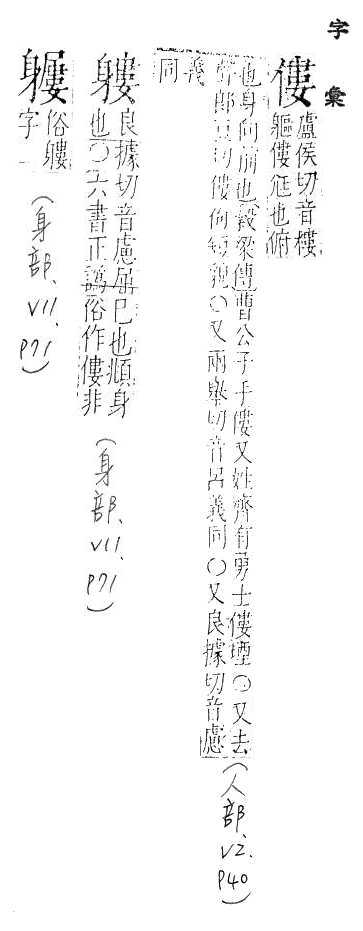 字彙
僂
盧侯切音樓
軀僂尩也俯
也身向前也穀梁傳曹公子手僂又姓齊有勇士僂堙〇又去
聲郎豆切僂佝短貌〇又兩舉切音呂義同〇又良據切音慮
義
同
(人部、V2、P40)
軁
良據切音慮屈巳也傾身
也〇六書正譌俗作僂非
(身部、V11、P71)
俗軁
字
(身部、V11、P71)